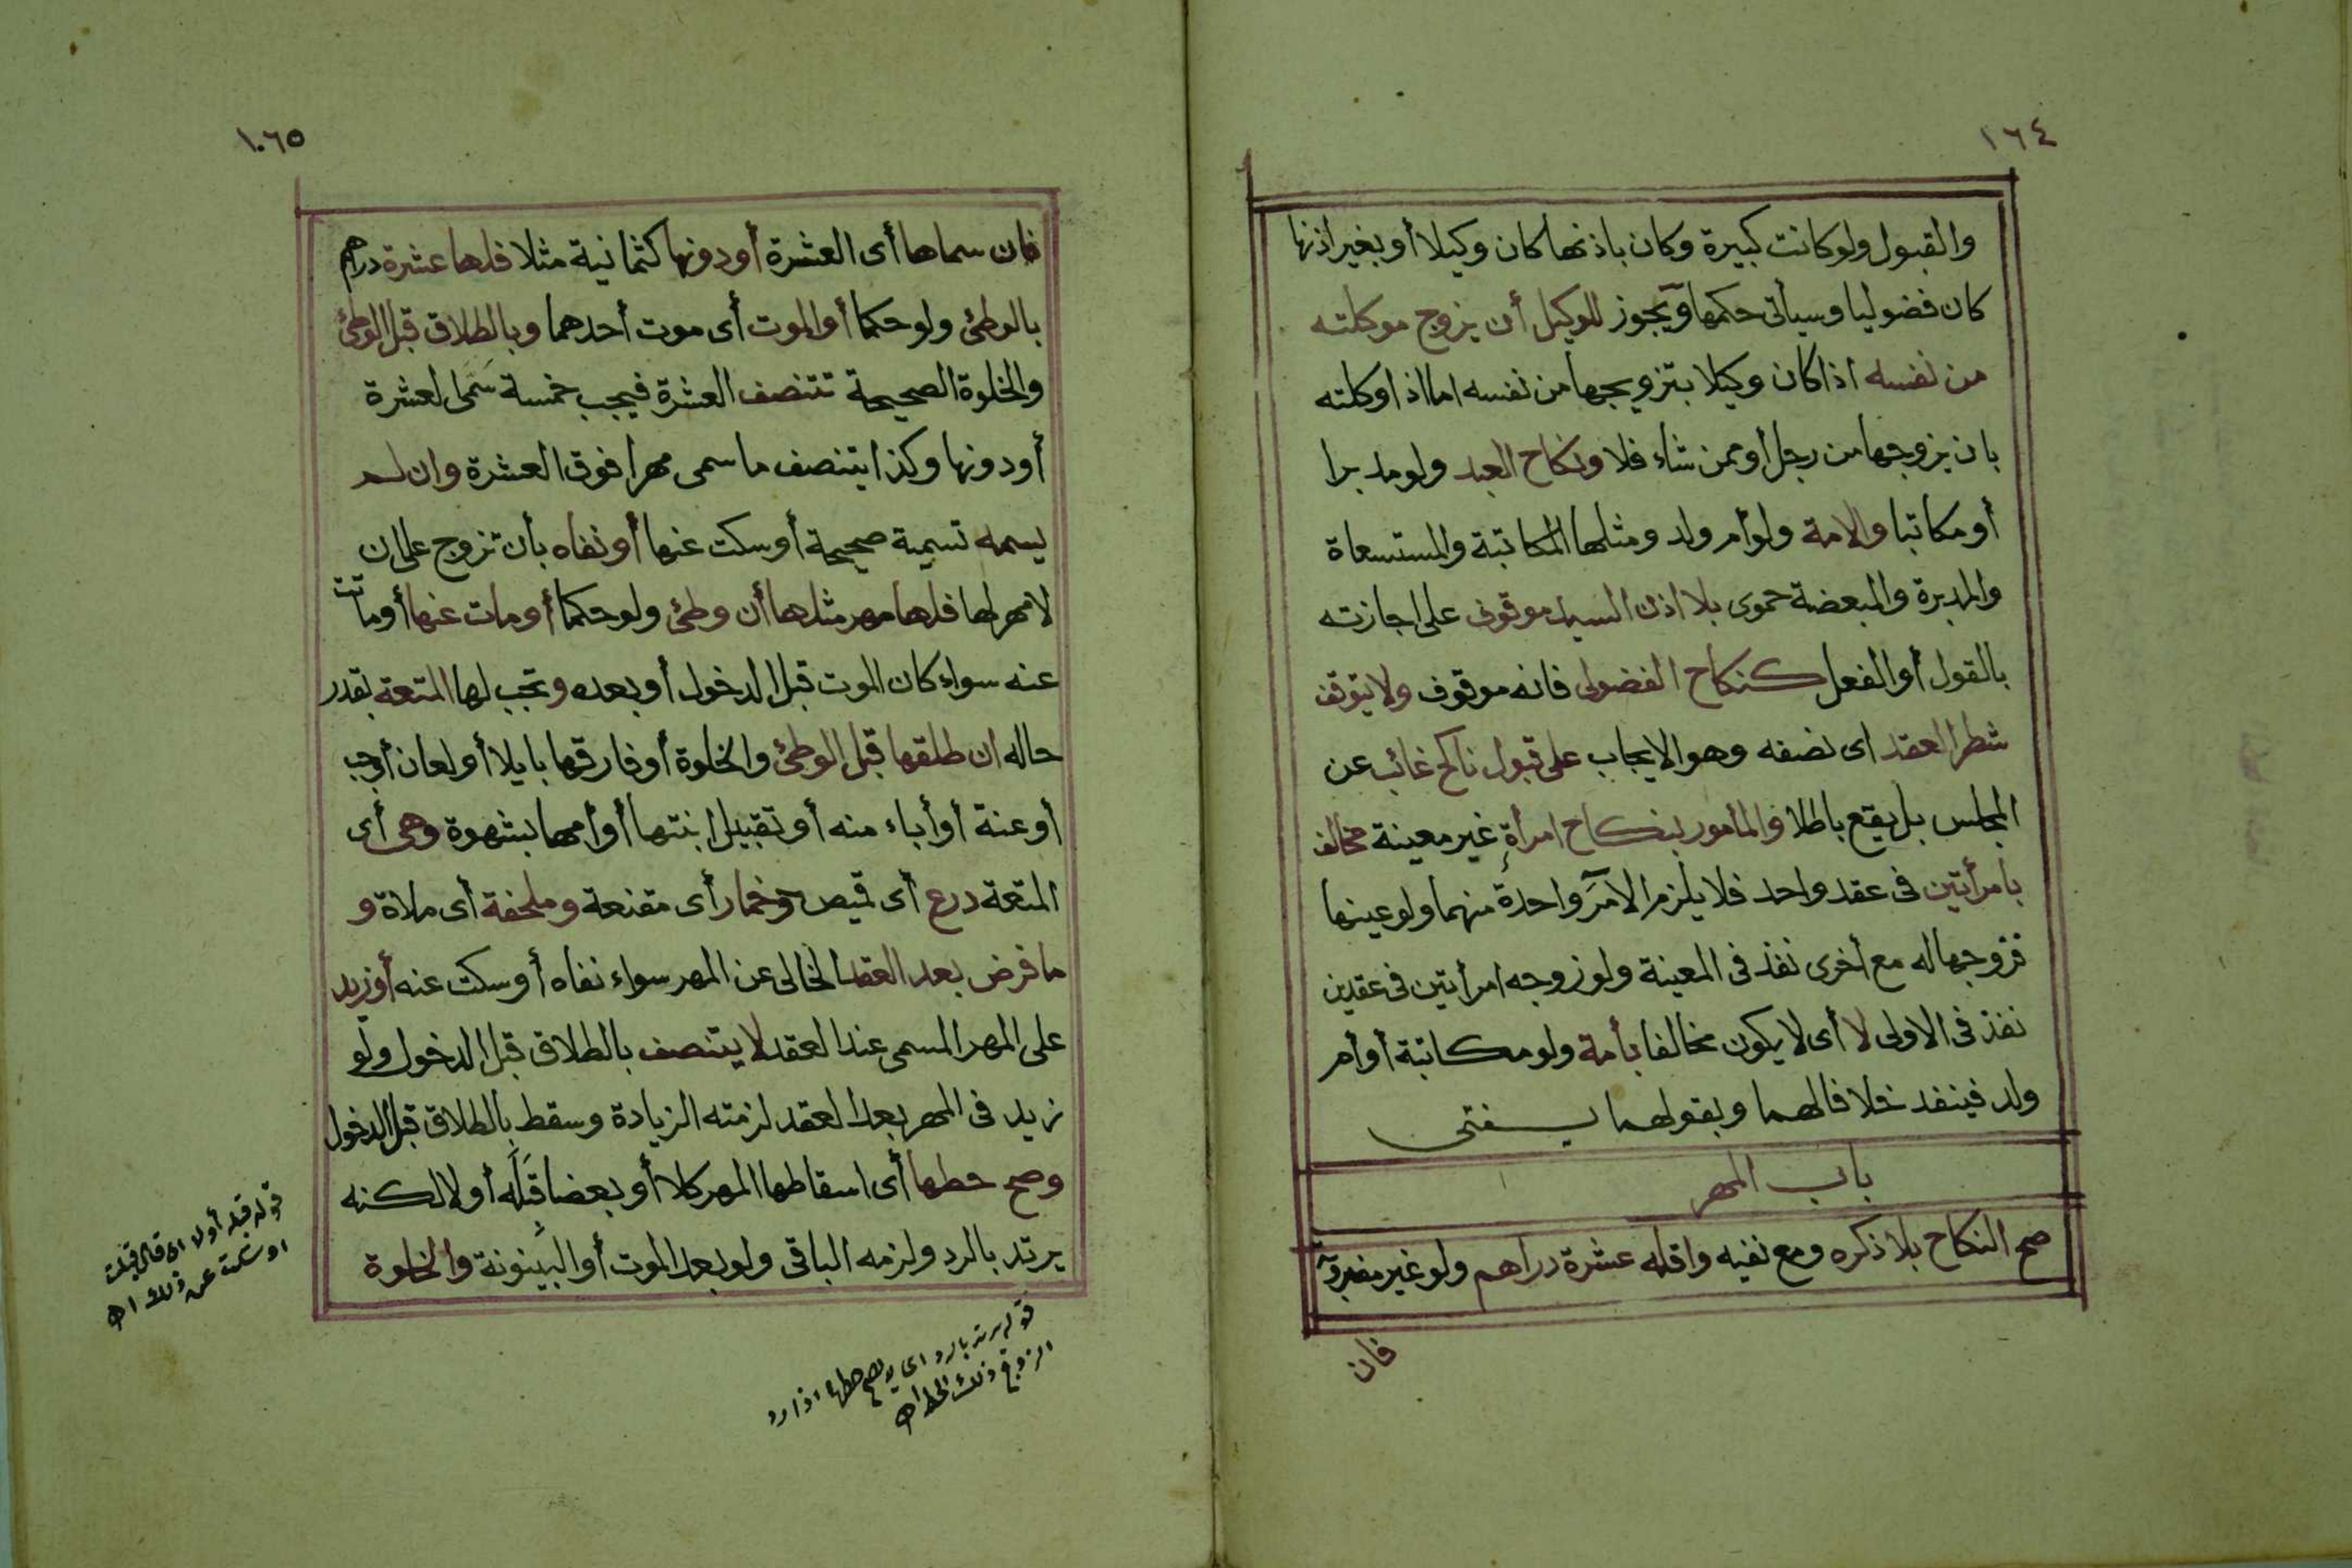 ١٦٤
والقبول ولو كانت كبيرة وكان باذنها كان وكيلا أو بغير اذنها
كان فضوليا وسيأتى حكمها ويجوز للوكيل أن يزوج موكلته
من نفسه اذا كان وكيلا بتزويجها من نفسه اما اذا وكلته
بان يزوجها من رجل أو ممن شاء فلا ونكاح العبد ولو مدبرا
أو مكاتبا والامة ولو أم ولد ومثلها المكاتبة والمستسعاة
والمدبرة والمبعضة حموى بلا اذن السيد موقوف على اجازته
بالقول أو الفعل كنكاح الفضولى فانه موقوف ولا يتوقف
شطر العقد اى نصفه وهو الايجاب على قبول ناكح غائب عن
المجلس بل يقع باطلا والمأمور بنكاح امرأةٍ غير معينة مخالف
بامرأتين فى عقد واحد فلا يلزم الآمرَ واحدة منهما ولو عينها
فزوجها له مع أخرى نفذ فى المعينة ولو زوجه امرأتين فى عقدين
نفذ فى الاولى لا أى لا يكون مخالفا بأمة ولو مكاتبة أو أم
ولد فينفد خلافا لهما وبقولهما يفتى
باب المهر
صح النكاح بلا ذكره ومع نفيه واقله عشرة دراهم ولو غير مضروبة
فان
١٠٦٥
فان سماها أى العشرة أو دونها كثمانية مثلا فلها عشرة دراهم
بالوطئ ولو حكما أو الموت أى موت أحدهما وبالطلاق قبل الوطئ
والخلوة الصحيحة تتنصف العشرة فيجب خمسة سَمى العشرة
أو دونها وكذا يتنصف ما سمى مهرا فوق العشرة وان لم
يسمه تسمية صحيحة أو سكت عنها أو نفاه بأن تزوج على ان
لا مهر لها فلها مهر مثلها أن وطئ ولو حكما أو مات عنها أو ماتت
عنه سواء كان الموت قبل الدخول أو بعده وتجب لها المتعة بقدر
حاله ان طلقها قبل الوطئ والخلوة أو فارقها بايلا أو لعان أو جب
أو عنة أو أباء منه أو تقبيل ابنتها أو أمها بشهوة وهى أى
المتعة درع أى قميص وخمار أى مقنعة وملحفة أى ملاة و
ما فرض بعد العقد الخالى عن المهر سواء نفاه أو سكت عنه أو زيد
على المهر المسمى عند العقد لا يتنصف بالطلاق قبل الدخول ولو
زيد فى المهر بعد العقد لزمته الزيادة وسقط بالطلاق قبل الدخول
وصح حطها أى اسقاطها المهر كلا أو بعضا قَبِلَه أو لا لكنه
يرتد بالرد ولزمه الباقى ولو بعد الموت أو البينونة والخلوة
قوله قبله أو لا اى قال قبلت
او سكت عن ذلك اه
قوله يرتد بالرد اى لا يصح حطها اذا رد
الزوج ذلك الحط اه